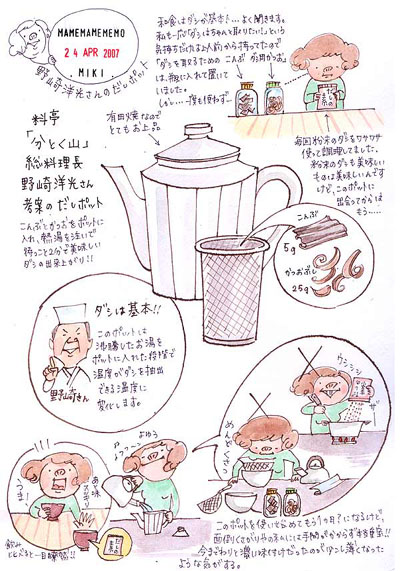 MAMEMAMEMEMO
24 APR 2007
.MIKI
野崎洋光さんのだしポット
料亭
「かとく山」
総料理長
野崎洋光さん
考案のだしポット
こんぶとかつおをポットに
入れ、熱湯を注いで
待つこと2分で美味しい
ダシの出来上がり!!
有田焼なので
とてもお上品
和食はダシが基本!…よく聞きます。
私も一応「ダシはちゃんと取りたい!」という
気持ちだけは人並み前から持ってたので
「ダシを取るための こんぶ
は、瓶に入れて置いて
いました。
しかし…一度も使わず
毎回粉末のダシをワサワサ
使って調理してました。
粉末のダシも美味しい
ものは美味しいんです
けど、このポットに
出会ってからは
もう……
こんぶ
5g
かつおぶし
25g
ダシは基本!!
このポットは
沸騰したお湯を
ポットに入れた段階で
温度がダシを抽出
できる温度に
変化します。
野崎さん
ウンシン
ザ
めんどくさっ
よゆう
!!!
うま!
あ味
スッキリ
飲み
比べると一目瞭然!!
だしの素
このポットを使い始めてもう1ヶ月?になるけど、
面倒くさがりやの私にとって手間がかからず本当重宝!!
今までわりと濃い味付けだったのが少こし薄くなった
ような気がする。